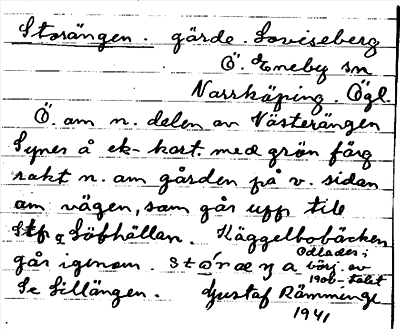 Storängen. gärde. Loviseberg
Ö. Eneby sn
Norrköping. Ögl.
Ö. om n. delen av Västerängen
Synes å ek-kart. med grön färg
rakt n. om gården på v. sidan
om vägen, som går upp till
Stp Löfhällan. Käggelbobäcken
går igenom. Odlades i
börj. av
1900-talet
Se Lillängen. Gustaf Rämminge
1941